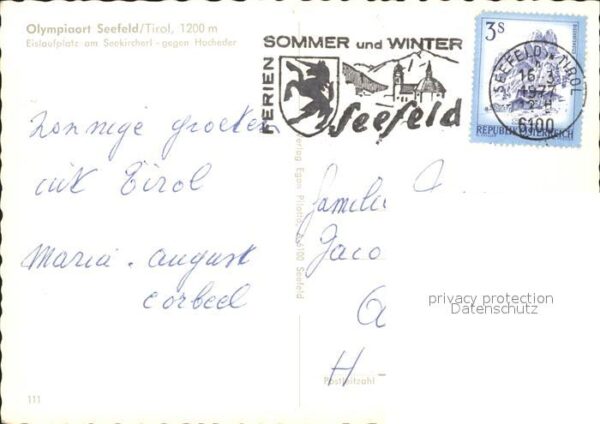 Olympiaort Seefeld/Tirol, 1200 m
Eislaufplatz am Seekircherl - gegen Hocheder
FERIEN
SOMMER und WINTER
Seefeld
3S
REPUBLIK ÖSTERREICH
SEEFELD TIROL
16. 3.
1977
6100
Zonnige groeten
uit Tirol
Maria - August
Corbeel
Verlag Egon Pilotto, A-6100 Seefeld
Familie
Jaco
H
Postleitzahl
privacy protection
Datenschutz
111